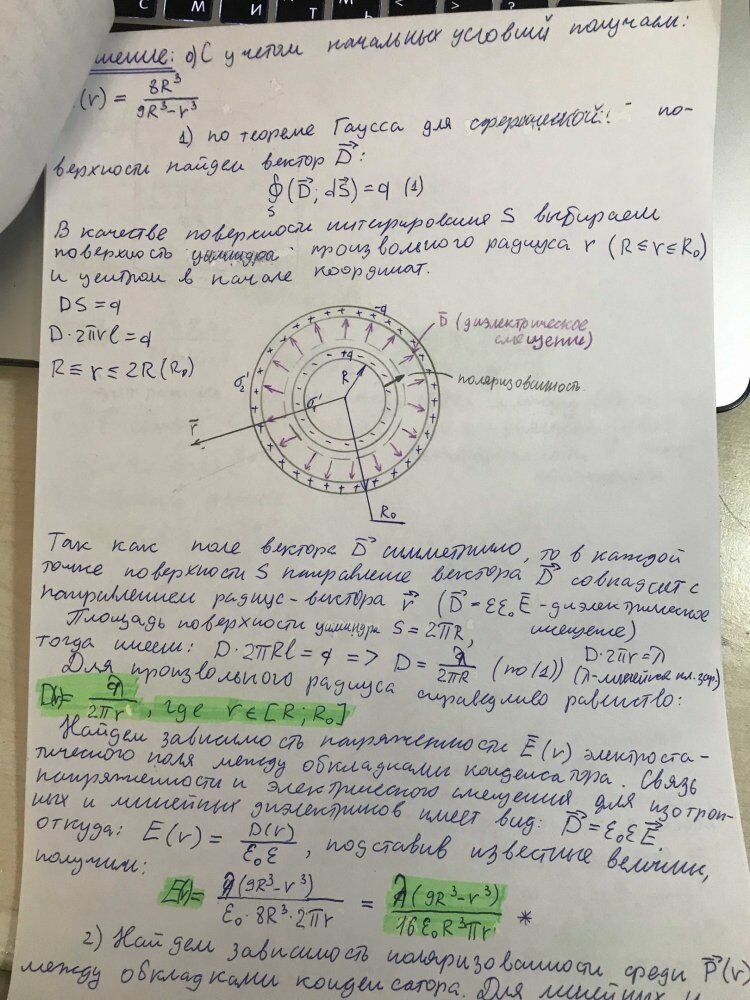 шение: о) С учетом начальных условий получаем:
(r) = 8R³ / 9R³-r³
1) по теореме Гаусса для сферической по-
верхности найдем вектор D⃗:
∮(D⃗; dS⃗) = q (1)
S
В качестве поверхности интегрирования S выбираем
поверхность цилиндра произвольного радиуса r (R ≤ r ≤ R₀)
и центром в начале координат.
DS = q
D·2πrl = q
R ≤ r ≤ 2R (R₀)
-q
D̄ (диэлектрическое
смещение)
+q
R
поляризованность
σ₂'
σ₁'
r̄
R₀
Так как поле вектора D⃗ симметрично, то в каждой
точке поверхности S направление вектора D⃗ совпадает с
направлением радиус-вектора r⃗ (D⃗ = εε₀E⃗ - диэлектрическое
смещение)
Площадь поверхности цилиндра S = 2πR,
D·2πr = λ
тогда имеем: D·2πRl = q => D = λ / 2πR (по (1)) (λ-линейная пл. зар.)
Для произвольного радиуса справедливо равенство:
D(r) = λ / 2πr, где r ∈ [R; R₀]
Найдем зависимость напряженности E̅(r) электроста-
тического поля между обкладками конденсатора. Связь
напряженности и электрического смещения для изотроп-
ных и линейных диэлектриков имеет вид: D⃗ = ε₀εE⃗
откуда: E(r) = D(r) / ε₀ε, подставив известные величин,
получим:
E(r) = λ(9R³-r³) / ε₀·8R³·2πr = λ(9R³-r³) / 16ε₀R³πr *
2) Найдем зависимость поляризованности среды P⃗(r)
между обкладками конденсатора. Для линейных и